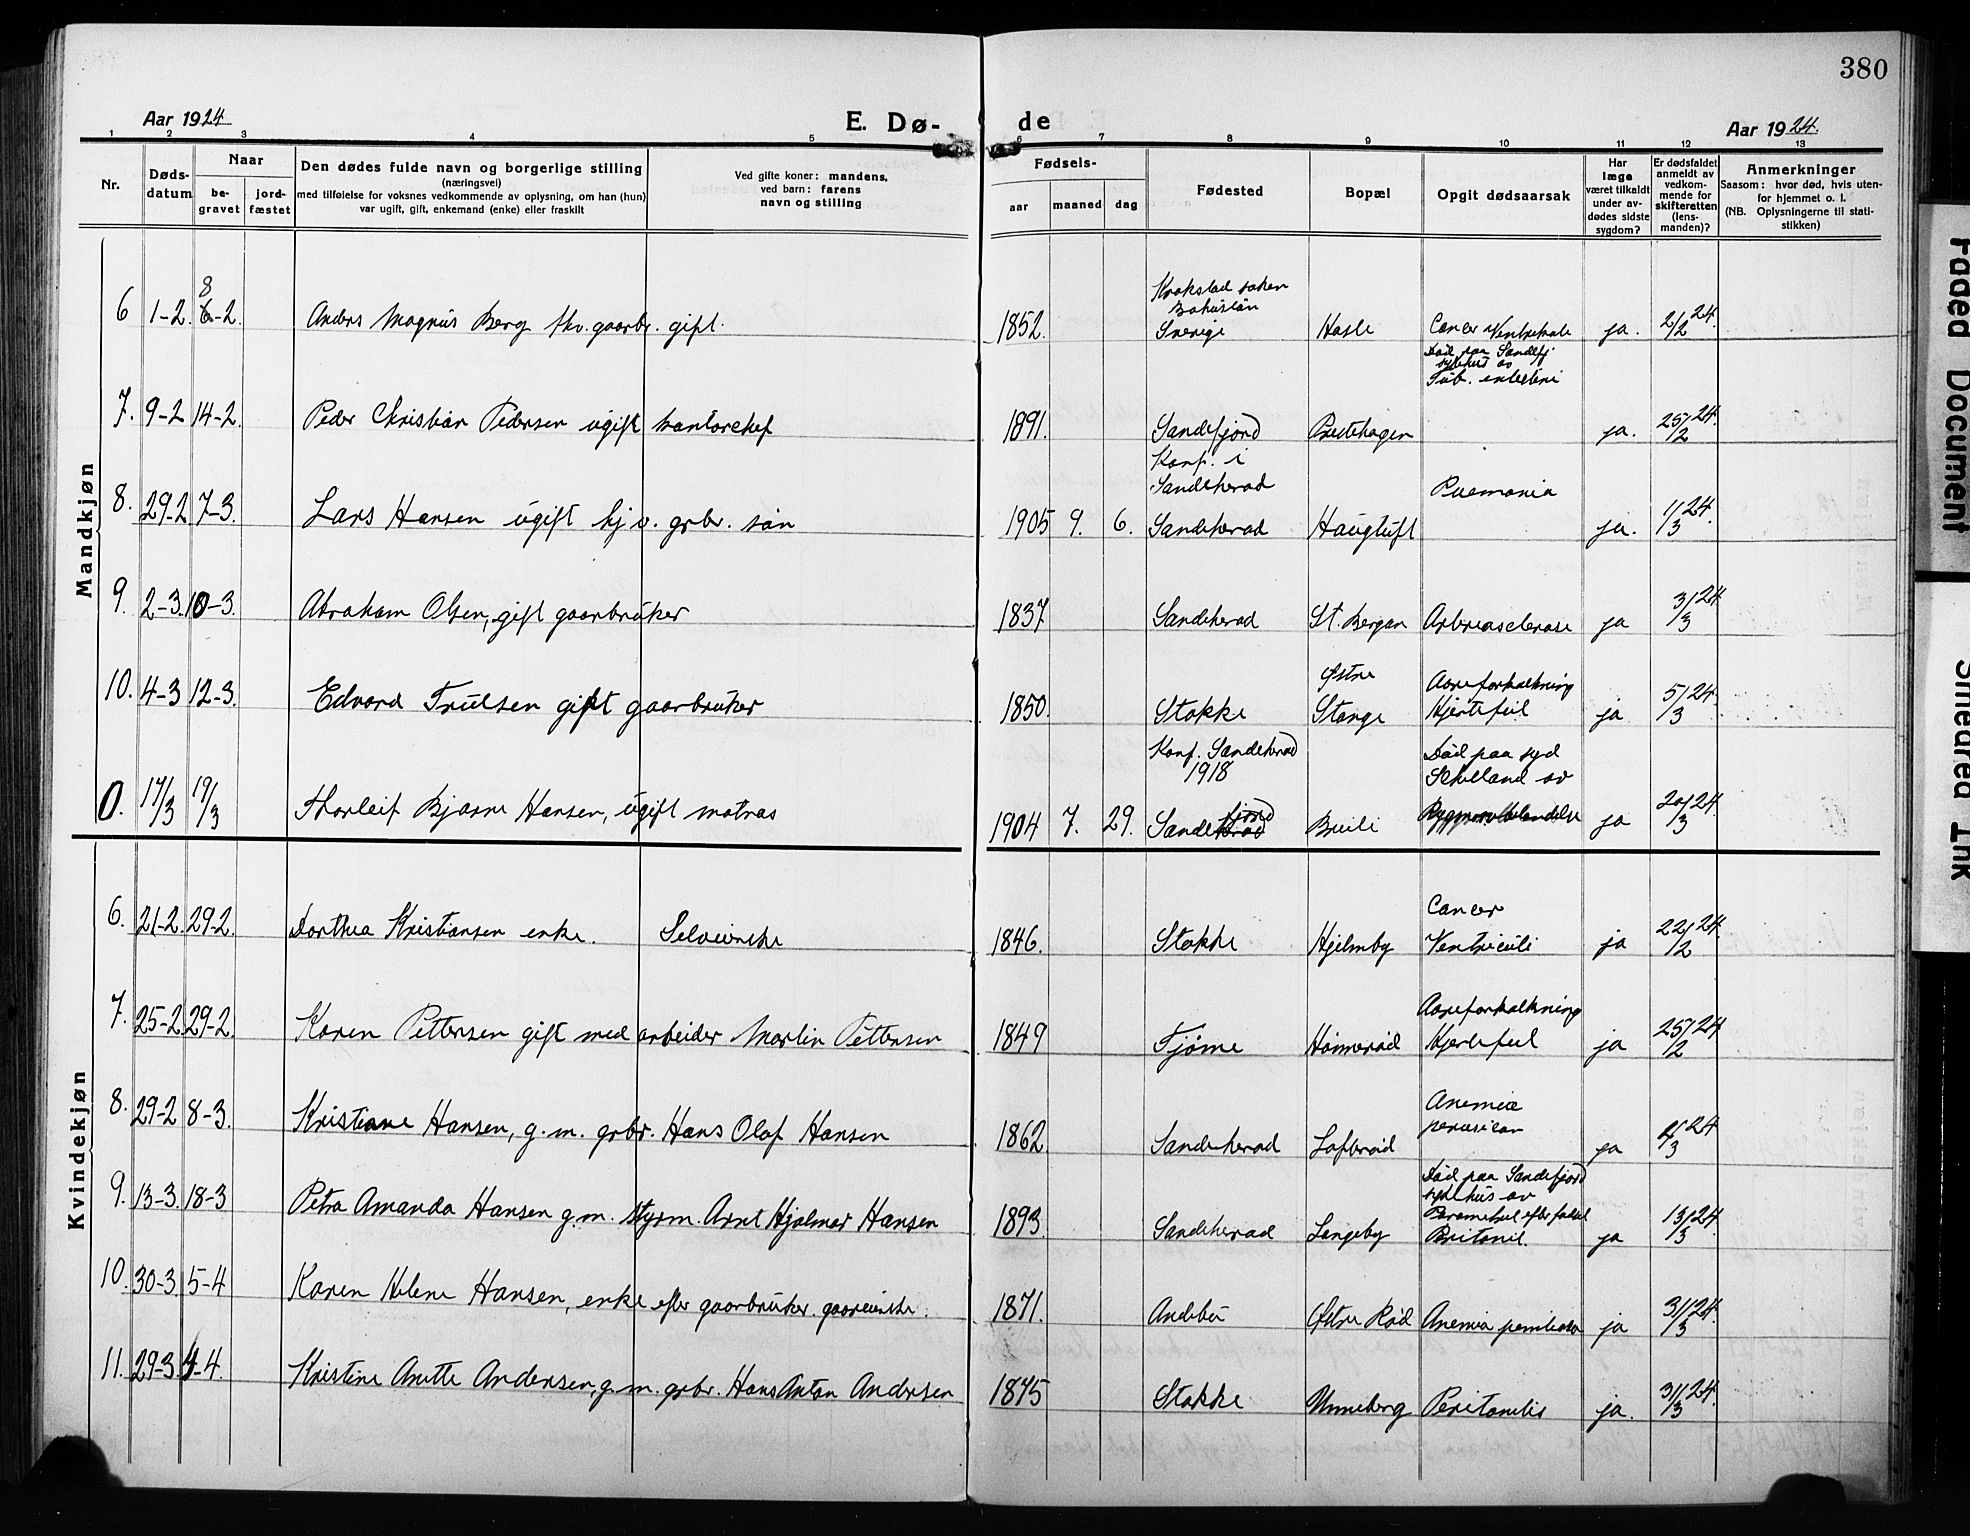 380
Aar 1924
E. Dø-
de
Aar 1924.
1 2 3 4 5 6 7 8 9 10 11 12 13
Nr.
Døds-
datum
Naar
be-
gravet
jord-
fæstet
Den dødes fulde navn og borgerlige stilling
(næringsvei)
med tilføielse for voksnes vedkommende av oplysning, om han (hun)
var ugift, gift, enkemand (enke) eller fraskilt
Ved gifte koner: mandens,
ved barn: farens
navn og stilling
Fødsels-
aar
maaned
dag
Fødested
Bopæl
Opgit dødsaarsak
Har
læge
været tilkaldt
under av-
dødes sidste
sygdom?
Er dødsfaldet
anmeldt av
vedkom-
mende for
skifteretten
(lens-
manden)?
Anmerkninger
Saasom: hvor død, hvis uten-
for hjemmet o. l.
(NB. Oplysningerne til stati-
stikken)
Mandkjøn
6 1-2. 8-2. Anders Magnus Berg fhv. gaarbr. gift.
1852. Krokstad soken
Bohuslän
Sverige Hasle Cancer Ventriculi ja. 2/2 24.
7. 9-2 14-2. Peder Christian Pedersen ugift kontorchef
1891. Sandefjord Prestehagen Død paa Sandefj
sykehus av
Tub. intestini ja. 25/2 24.
8. 29-2 7-3. Lars Hansen ugift hjv. grbr. søn
1905 9. 6. Konf. i
Sandeherad
Sandeherad Haugtuft Pnemonia ja. 1/3 24.
9. 2-3. 10-3. Abraham Olsen, gift gaarbruker
1837 Sandeherad St. Bergan Arterioslerose ja 3/3 24
10. 4-3 12-3. Edvard Trulsen gift gaarbruker
1850. Stokke Østre
Stange Aareforkalkning
Hjertefeil ja 5/3 24.
0. 17/3 19/3 Thorleif Bjarne Hansen, ugift matros
1904 7. 29. Konf. Sandeherad
1918
Sandefjord Breili Død paa syd
Schetland av
ja 20/3 24.
Kvindekjøn
6. 21-2. 29-2. Dorthea Kristiansen enke. Selveierske
1846. Stokke Hjelmby Cancer
Ventriculi ja 22/2 24.
7. 25-2 29-2. Karen Pettersen gift med arbeider Martin Pettersen
1849 Tjøme Haannerød Aareforkalkning
Hjertefeil ja 25/2 24
8. 29-2 8-3. Kristiane Hansen, g. m. grbr. Hans Olaf Hansen
1862 Sandeherad Loftsrød Anemia
ja 1/3 24
9. 13-3. 18-3 Petra Amanda Hansen g.m. styrm. Arnt Hjalmar Hansen
1893. Sandeherad Langeby Død paa Sandefjord
sykehus av
Peritonit. ja 13/3 24.
10. 30-3. 5-4 Karen Helene Hansen, enke efter gaarbruker. gaareierske.
1871. Andebu Østre Rød Anemia ja 31/3 24.
11. 29-3. 4-4. Kristine Anette Andersen, g.m. grbr. Hans Anton Andersen
1875 Stokke Unneberg Peritonitis ja. 31/3 24.
Faded Document
Smeared Ink